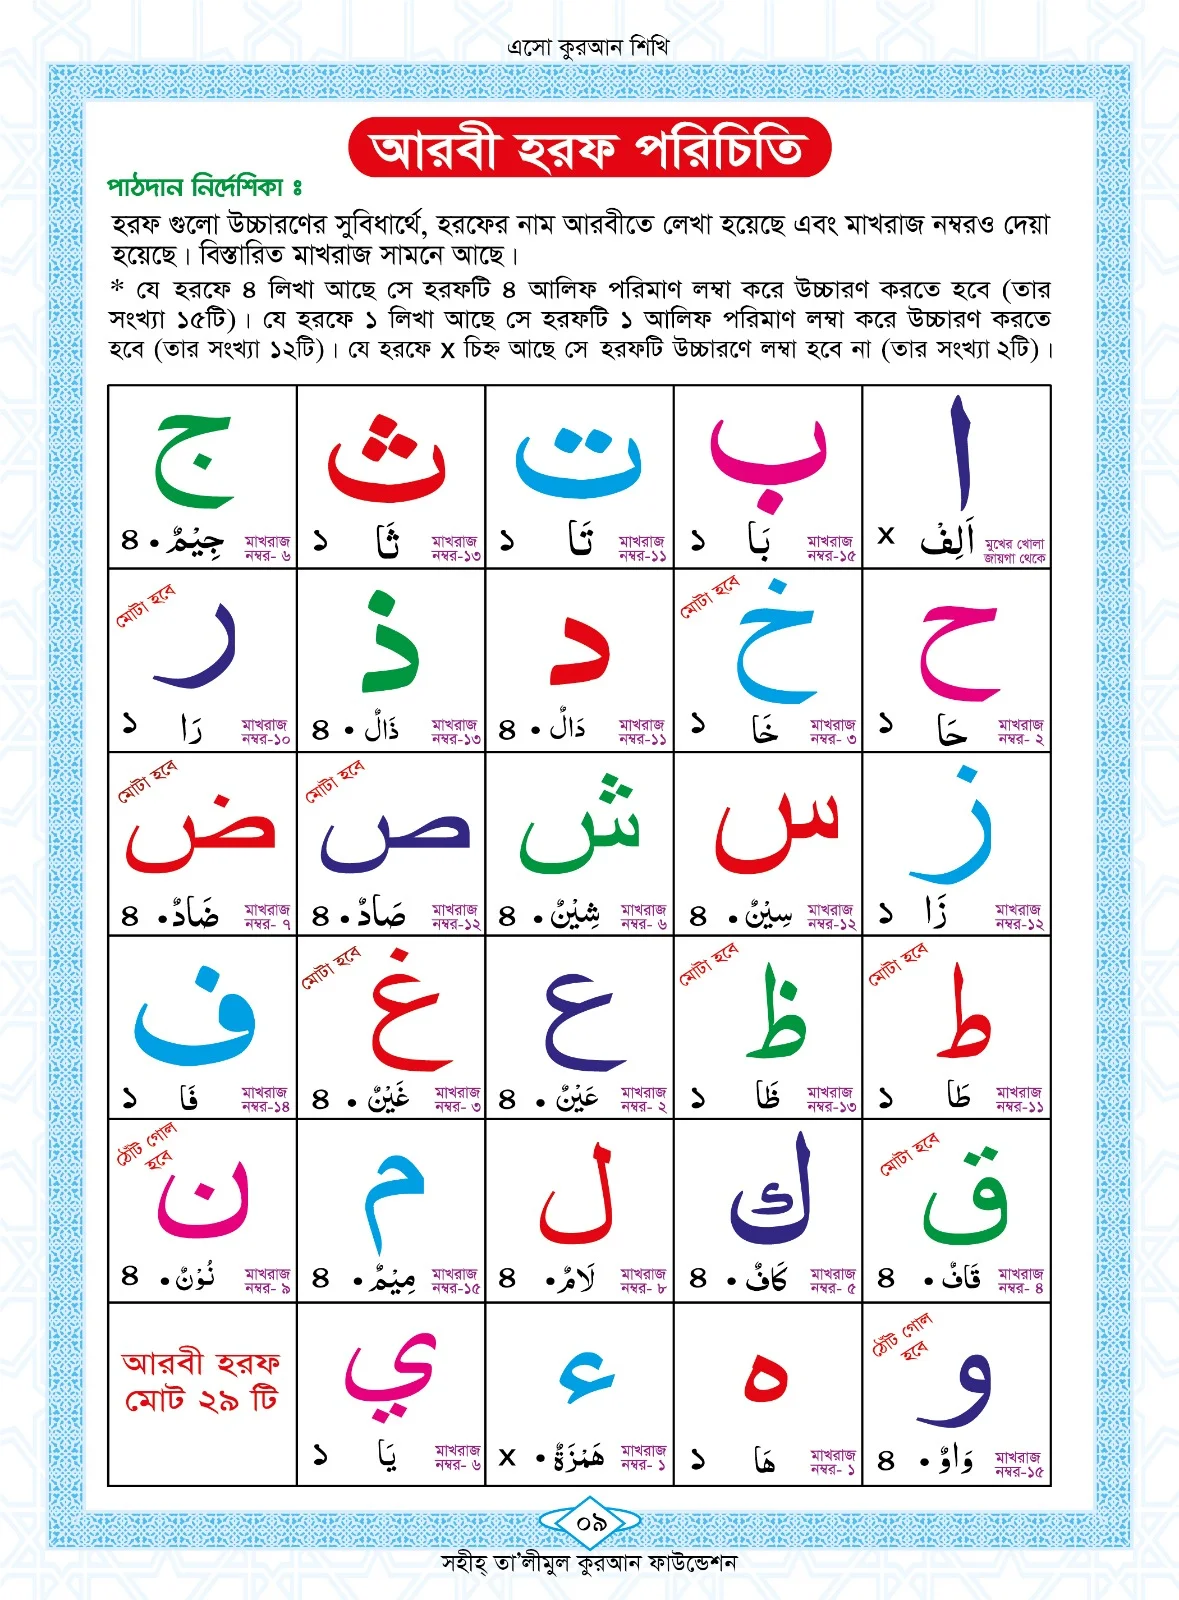 এসো কুরআন শিখি
আরবী হরফ পরিচিতি
পাঠদান নির্দেশিকা ঃ
হরফ গুলো উচ্চারণের সুবিধার্থে, হরফের নাম আরবীতে লেখা হয়েছে এবং মাখরাজ নম্বরও দেয়া
হয়েছে। বিস্তারিত মাখরাজ সামনে আছে।
* যে হরফে ৪ লিখা আছে সে হরফটি ৪ আলিফ পরিমাণ লম্বা করে উচ্চারণ করতে হবে (তার
সংখ্যা ১৫টি)। যে হরফে ১ লিখা আছে সে হরফটি ১ আলিফ পরিমাণ লম্বা করে উচ্চারণ করতে
হবে (তার সংখ্যা ১২টি)। যে হরফে x চিহ্ন আছে সে হরফটি উচ্চারণে লম্বা হবে না (তার সংখ্যা ২টি)।
ا
x اَلِفْ মুখের খোলা
জায়গা থেকে
ب
১ بَا মাখরাজ
নম্বর-১৫
ت
১ تَا মাখরাজ
নম্বর-১১
ث
১ ثَا মাখরাজ
নম্বর-১৩
ج
৪ • جِيْمٌ মাখরাজ
নম্বর- ৬
ح
১ حَا মাখরাজ
নম্বর- ২
মোটা হবে
خ
১ خَا মাখরাজ
নম্বর- ৩
د
৪ • دَالٌ মাখরাজ
নম্বর-১১
ذ
৪ • ذَالٌ মাখরাজ
নম্বর-১৩
মোটা হবে
ر
১ رَا মাখরাজ
নম্বর-১০
ز
১ زَا মাখরাজ
নম্বর-১২
س
৪ • سِيْنٌ মাখরাজ
নম্বর-১২
ش
৪ • شِيْنٌ মাখরাজ
নম্বর- ৬
মোটা হবে
ص
৪ • صَادٌ মাখরাজ
নম্বর-১২
মোটা হবে
ض
৪ • ضَادٌ মাখরাজ
নম্বর- ৭
মোটা হবে
ط
১ طَا মাখরাজ
নম্বর-১১
মোটা হবে
ظ
১ ظَا মাখরাজ
নম্বর-১৩
ع
৪ • عَيْنٌ মাখরাজ
নম্বর- ২
মোটা হবে
غ
৪ • غَيْنٌ মাখরাজ
নম্বর- ৩
ف
১ فَا মাখরাজ
নম্বর-১৪
মোটা হবে
ق
৪ • قَافٌ মাখরাজ
নম্বর- ৪
ك
৪ • كَافٌ মাখরাজ
নম্বর- ৫
ل
৪ • لَامٌ মাখরাজ
নম্বর- ৮
م
৪ • مِيْمٌ মাখরাজ
নম্বর-১৫
ঠোঁট গোল
হবে
ن
৪ • نُوْنٌ মাখরাজ
নম্বর- ৯
ঠোঁট গোল
হবে
و
৪ • وَاوٌ মাখরাজ
নম্বর-১৫
ه
১ هَا মাখরাজ
নম্বর- ১
ء
x • هَمْزَةٌ মাখরাজ
নম্বর- ১
ي
১ يَا মাখরাজ
নম্বর- ৬
আরবী হরফ
মোট ২৯ টি
০৯
সহীহ্ তা'লীমুল কুরআন ফাউন্ডেশন